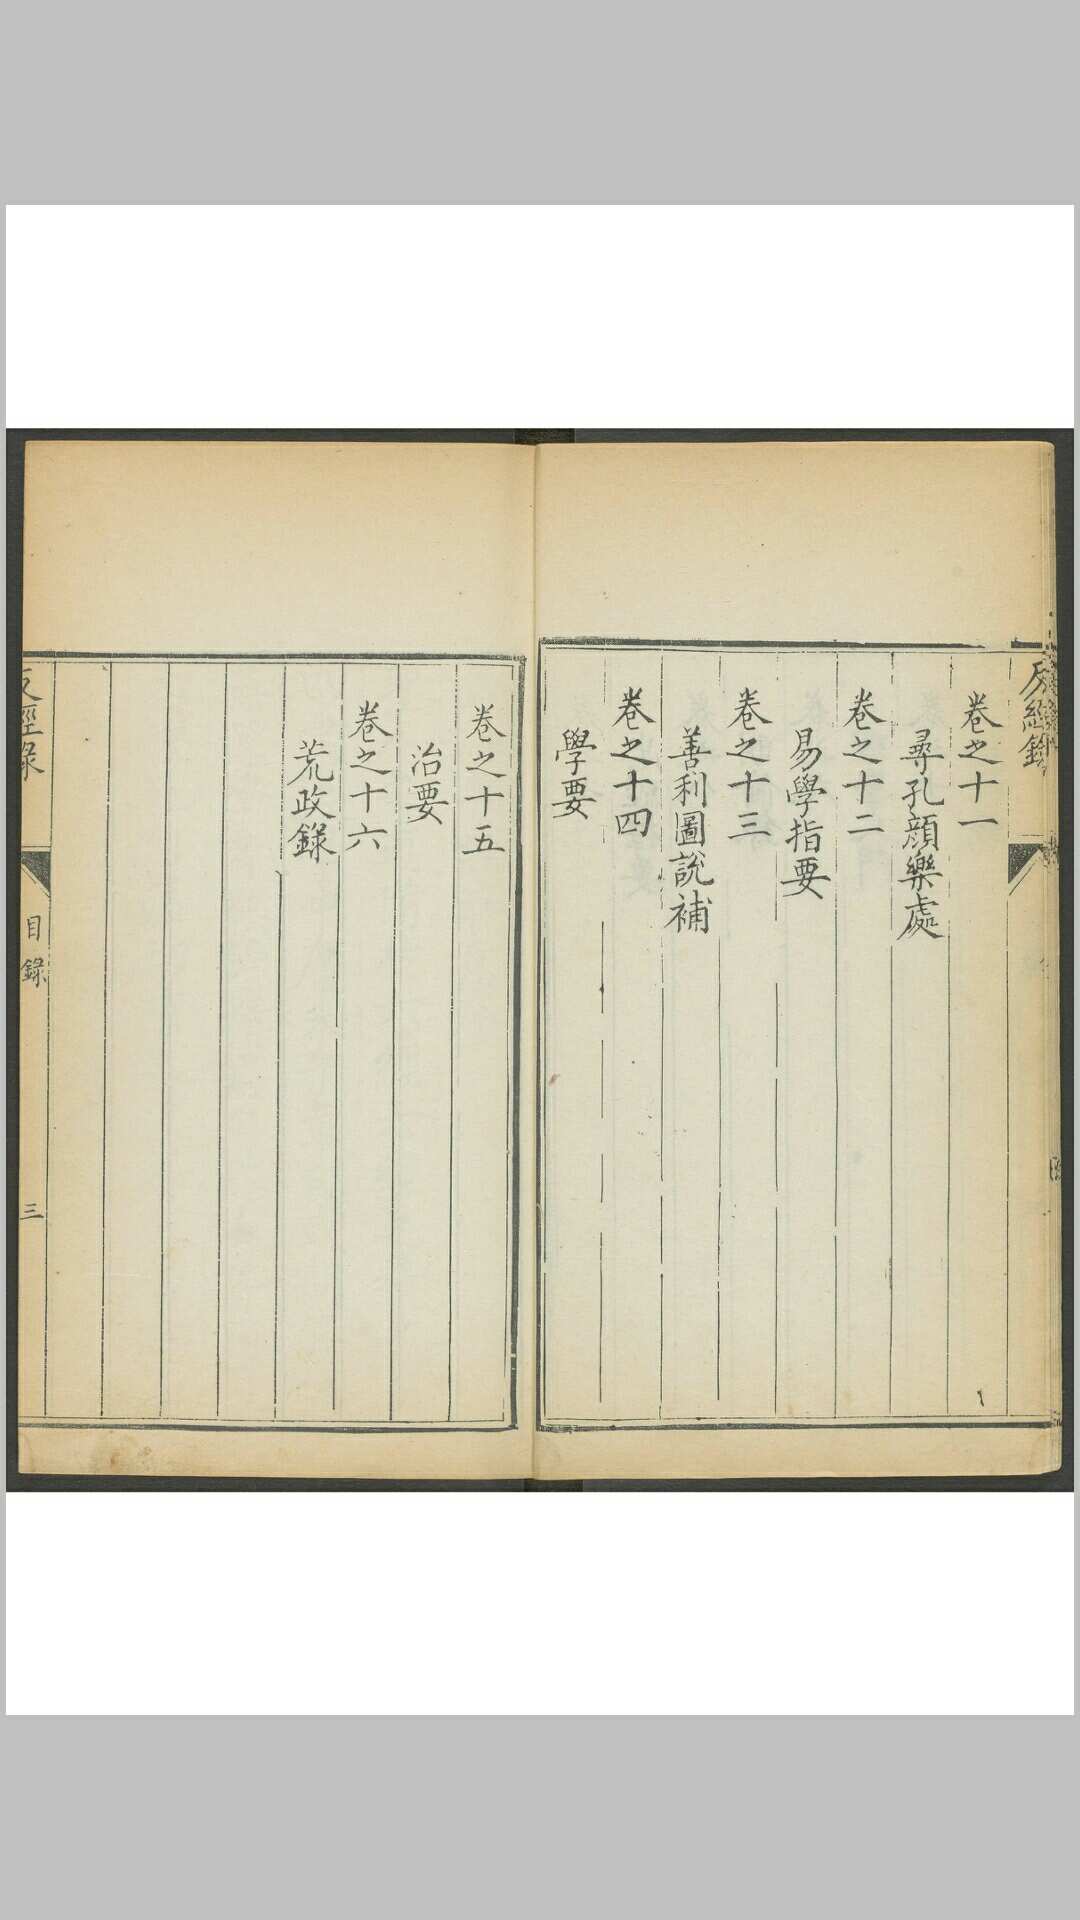 反經錄
卷之十一
尋孔顔樂處
卷之十二
易學指要
卷之十三
善利圖說補
卷之十四
學要
卷之十五
治要
卷之十六
荒政錄
反經錄
目錄
三